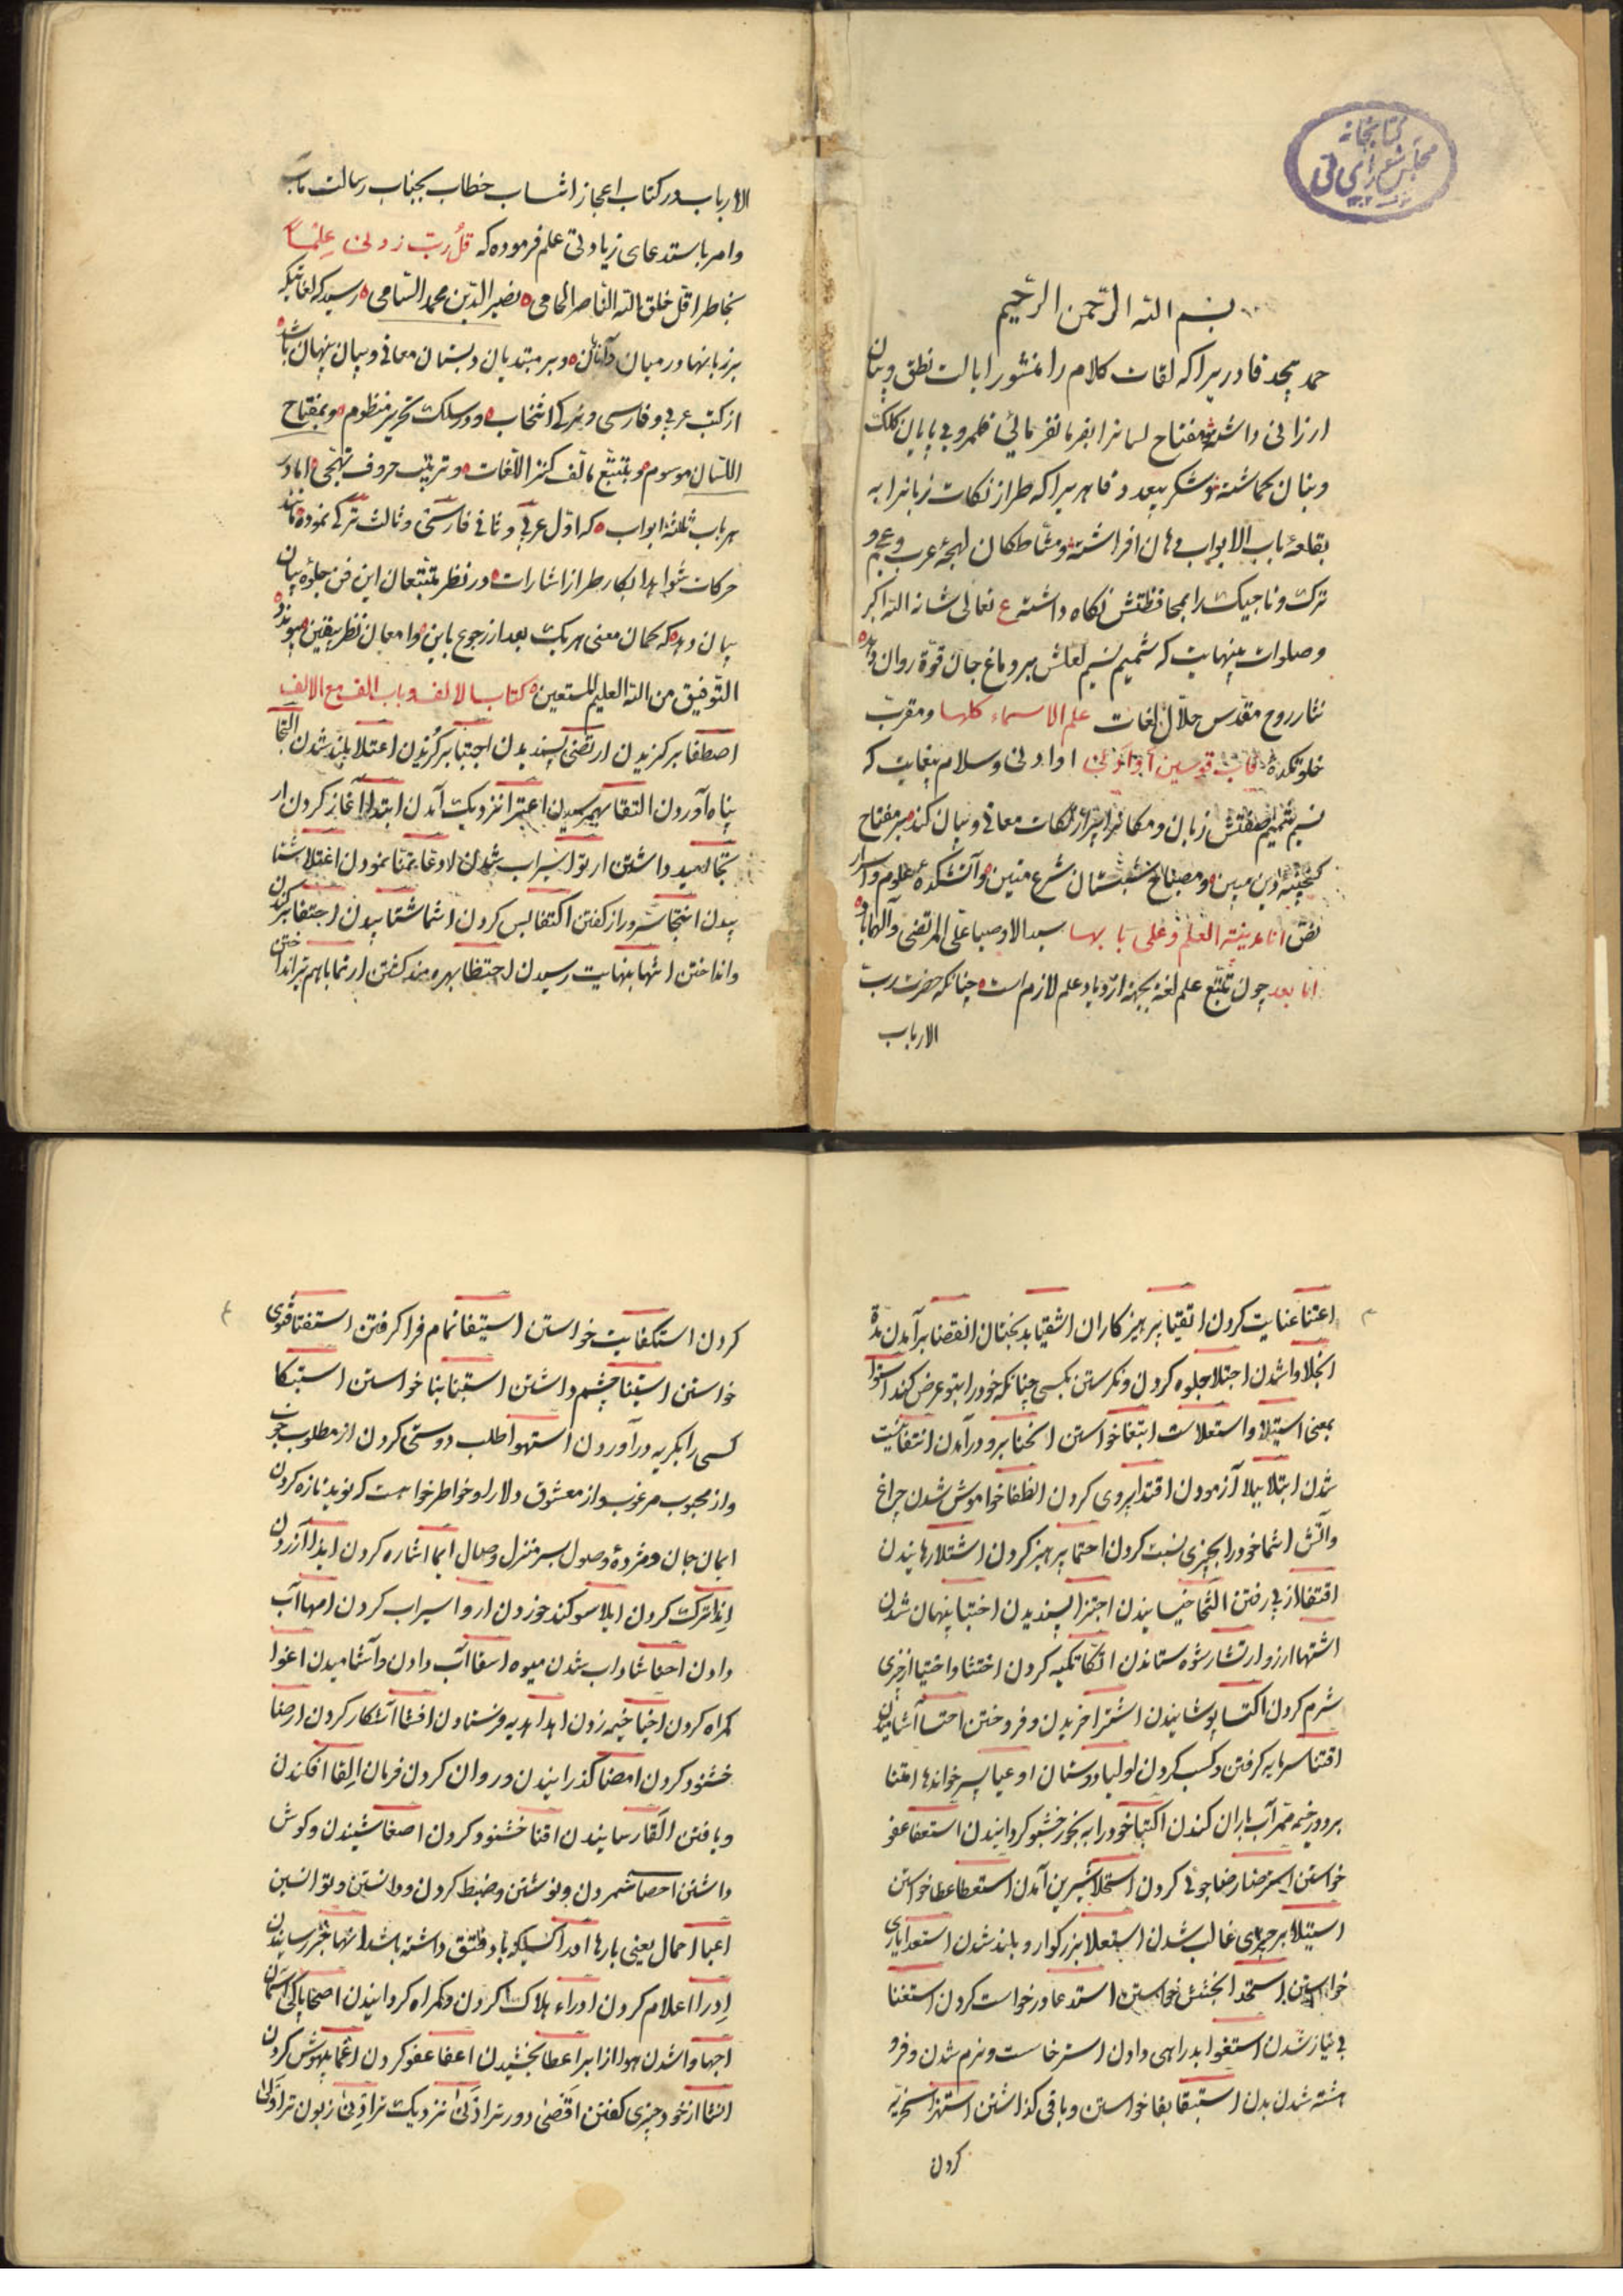 کتابخانه
مجلس شورای ملی
بسم الله الرحمن الرحیم
حمد بیحد قادریرا که لغات کلام را منشور ایالت نطق و بیان
ارزانی داشته مفتاح لسانرا بفرمانفرمائی قلمرو بی پایان کلک
و بنان بگماشته و شکر بیعد و قاهریرا که طراز نکات زبانرا به
بقلعۀ باب الابواب دهان افراشته و مشاطکان لهجۀ عرب و عجم و
ترک و تاجیک را بمحافظتش نکاه داشته ع تعالی شانه الله اکبر
و صلوات بینهایت که شمیم نسیم لعلش بر دماغ جان قوة روان دهد
نثار روح مقدس حلال لغات علم الاسماء کلها و مقرب
خلوتکدۀ قاب قوسین او ادنی و سلام بیغایت که
نسیم شمیم صفتش زبان و مکانرا نکات معانی و بیان کند بر مفتاح
کنجینه دین مبین و مصباح شبستان شرع متین و آتشکده علوم و اسرار
نص انا مدینة العلم و علی بابها سید الاوصیا علی المرتضی و آلها باد
اما بعد چون تتبع علم لغة بجهة ازدیاد علم لازم است چنانکه حضرت رب
الارباب
الارباب در کتاب اعجاز انتساب خطاب بجناب رسالت مآب
و امر باستدعای زیادتی علم فرموده که قل رب زدنی علما
بخاطر اقل خلق الله الناصر الحامی نصیر الدین محمد السامی رسید که لغاتیکه
بر زبانها در میان و بر مبتدیان دبستان معانی و بیان پنهان باشد
از کتب عربی و فارسی و ترکی انتخاب و در سلک تحریر منظوم و بمفتاح
اللسان موسوم و بتتبع مالف کنز اللغات و ترتیب حروف تهجی اما در
هر باب ثلثة ابواب که اول عربی و ثانی فارسی و ثالث ترکی نموده مانند
حرکات شواهد ابکار طراز اشارات در نظر متتبعان این فن جلوۀ بیان
بیان دهد که کمان معنی هر یک بعد از رجوع باین و امعان نظر بیقین پیوندد
التوفیق من الله العلیم المستعین کتاب الالف باب الف مع الالف
اصطفا برکزیدن ارتضی پسندیدن اجتبا برکزیدن اعتلا بلند شدن التجا
پناه آوردن التقا بهم رسیدن اعتزا نزدیک آمدن ابتدا آغاز کردن ار
تجا امید داشتن ارتوا سیراب شدن ادعا تمنا نمودن اغتلا شتا
بیدن انتجا سر و راز کفتن اکتفا بس کردن اشتا شتابیدن اجتفا برکندن
و انداختن انتها بنهایت رسیدن احتظا بهره مند کشتن ارتما باهم تیر انداختن
اعتنا عنایت کردن اتقیا پرهیزکاران اشقیا بدبختان انقضا برآمدن مدة
انجلا وا شدن اجتلا جلوه کردن و نکرستن بکسی چنانکه خود را بتو عرض کند استوا
بمعنی استیلا و استعلا است ابتغا خواستن انحنا برو درآمدن انتفا نیست
شدن ابتلا ببلا آزمودن اقتدا پیروی کردن انطفا خواموش شدن چراغ
و آتش انتما خود را بچیزی نسبت کردن احتما پرهیز کردن اشتلا رهانیدن
اقتفا از پی رفتن التحا خیسانیدن اجتزا پسندیدن اختبا پنهان شدن
اشتها ارزو ارتشا رشوه ستاندن اتکا تکیه کردن اختشا و اختیا از چیزی
شرم کردن اکتسا پوشانیدن اشترا خریدن و فروختن احتسا آشامیدن
اقتنا سرمایه کرفتن و کسب کردن اولیا دوستان ادعیا پسر خوانده ها امتنا
برود خیمه ممر آب باران کندن اکتبا خود را به بخور خشبو کردانیدن استعفا عفو
خواستن استرضا رضا جوئی کردن استحلا شیرین آمدن استعطا عطا خواستن
استیلا بر چیزی غالب شدن استعلا بزرکوار و بلند شدن استعدا یاری
خواستن استجدا بخشش خواستن استدعا درخواست کردن استغنا
بی نیاز شدن استغوا بدراهی دادن استرخا سست و نرم شدن و فرو
هشته شدن بدن استبقا بقا خواستن و باقی کذاشتن استهزا سخریه
کردن
کردن استکفا یت خواستن استیفا تمام فرا کرفتن استفتا فتوی
خواستن استثنا چشم داشتن استبنا بنا خواستن استبکا
کسی را بکریه درآوردن استهوا طلب دوستی کردن از مطلوب خوب
و از محبوب مرغوب و از معشوق دلارا و خواطر خواست که نوید تازه کردن
ایمان جان و مژدۀ وصول بسر منزل وصال ایما اشاره کردن ایذا آزردن
اندا ترک کردن ایلا سوکند خوردن اروا سیراب کردن امها آب
دادن احفا شاداب شدن میوه اسقا آب دادن و آشامیدن اغوا
کمراه کردن اخبا خیمه زدن اهدا هدیه فرستادن افشا آشکار کردن ارضا
خشنود کردن امضا کذرانیدن و روان کردن فرمان القا افکندن
و یافتن القا رسانیدن اقنا خشنود کردن اصغا شنیدن و کوش
داشتن احصا شمردن و نوشتن و ضبط کردن و دانستن و توانستن
اعبا احمال یعنی بارها ادرا کسیکه باد فتق داشته باشد انها خبر رسانیدن
ادرا اعلام کردن ارداء هلاک کردن و کمراه کردانیدن اصحا پاکی آسمان
اجها وا شدن هوا از ابر اعطا بخشیدن اعفا عفو کردن اغما بیهوش کردن
انشا از خود چیزی کفتن اقصی دورتر ادنی نزدیک تر ادنی زبون تر اولی